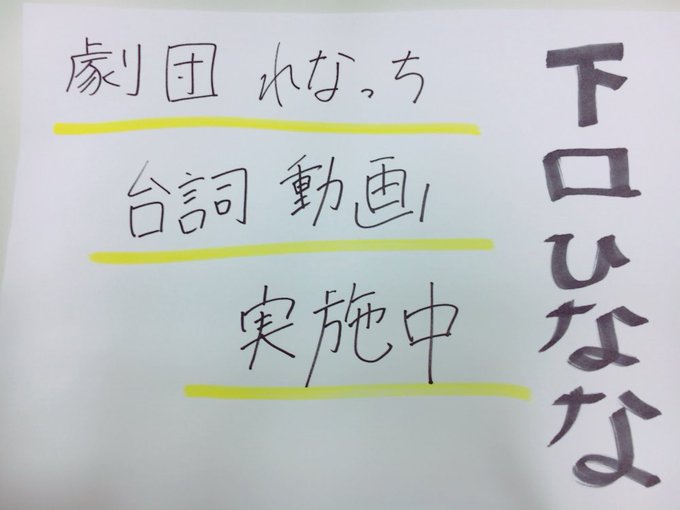 劇団 れなっち
台詞 動画
実施中
下口ひなな